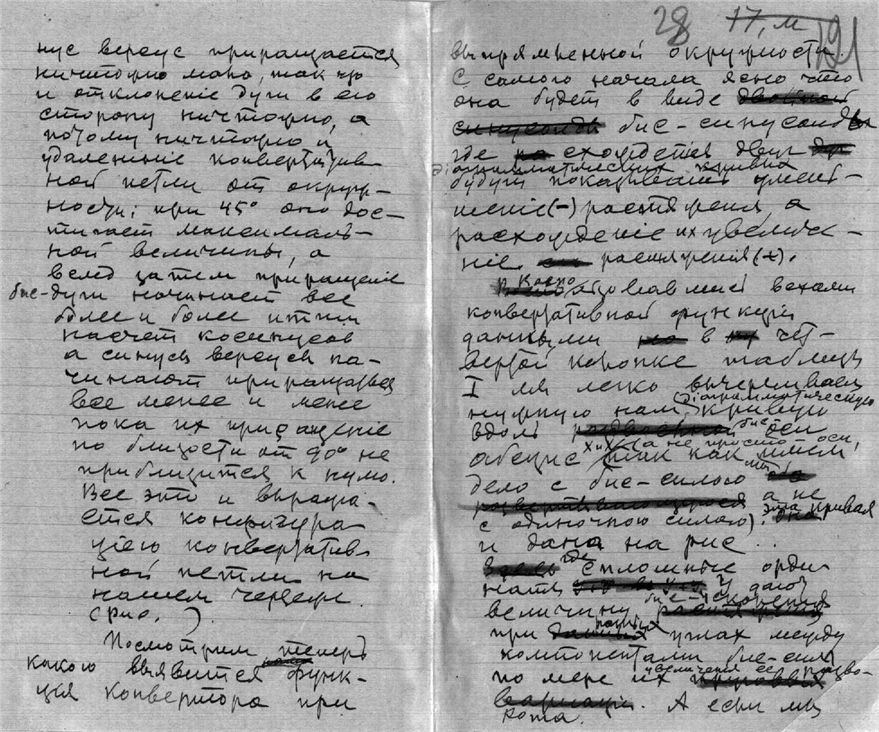 нус версус приращается
ничтожно мало, так что
и отклонение дуги в его
сторону ничтожно, а
потому ничтожно и
удаление конвертатив-
ной петли от окруж-
ности; при 45° оно дос-
тигает максималь-
ной величины, а
вслед за тем приращение
бис-дуги начинает все
более и более итти
насчет косинусов
а синусы версусы на-
чинают приращаться
все менее и менее
пока их приращение
по близости от 90° не
приблизится к нулю.
Все это и выража-
ется конфигура-
цiею конвертатив-
ной петли на
нашем чертеже
(рис. )
Посмотрим теперь
какою выявится функ-
ция конвертора при
28 17, м
выпрямленной окружности.
С самого начала ясно что
она будет в виде
бис-синусоиды
где схождения двух
дiаграмматических кривых
будут показывать умень-
шенiе (-) растяженiя, а
расхожденiе их увеличе-
нiе растяженiя (+).
вехами
конвертативной функцiи
данными в чет-
вертой колонке таблицы
I мы легко вычерчиваем
нужную нам дiаграмматическую кривую
вдоль бис- оси
абсцис (а не просто оси,
так как имеем
дело с бис-силою а не
с одиночною силою). эта кривая
и дана на рис ..
где сплошные орди-
наты y дают
величину бис-
при разных углах между
компонентами бис-силы
по мере их увеличения
А если мы